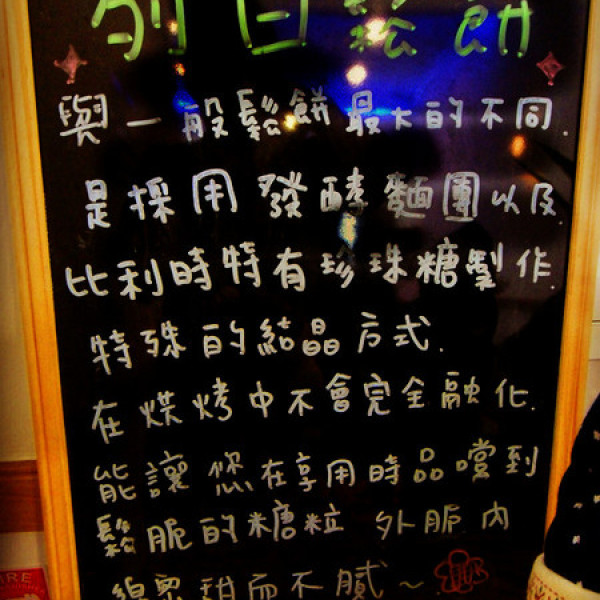 列日鬆餅
與一般鬆餅最大的不同.
是採用發酵麵團以及
比利時特有珍珠糖製作.
特殊的結晶方式.
在烘烤中不會完全融化.
能讓您在享用時品嚐到
鬆脆的糖粒 外脆內
綿密甜而不膩~